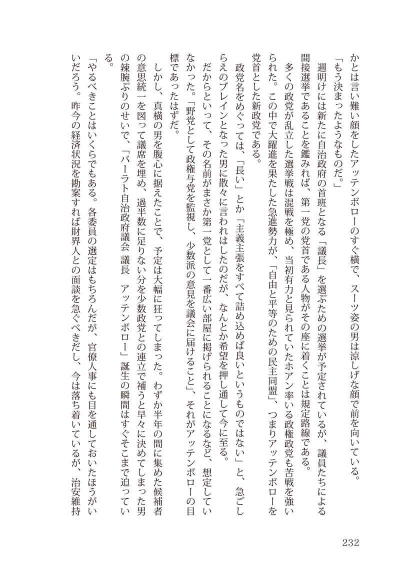 かとは言い難い顔をしたアッテンボローのすぐ横で、スーツ姿の男は涼しげな顔で前を向いている。
「もう決まったようなものだ。」
週明けには新たに自治政府の首班となる「議長」を選ぶための選挙が予定されているが、議員たちによる
間接選挙であることを鑑みれば、第一党の党首である人物がその座に着くことは規定路線である。
多くの政党が乱立した選挙戦は混戦を極め、当初有力と見られていたホアン率いる政権政党も苦戦を強い
られた。この中で大躍進を果たした急進勢力が、「自由と平等のための民主同盟」、つまりアッテンボローを
党首とした新政党である。
政党名をめぐっては、「長い」とか「主義主張をすべて詰め込めば良いというものではない」と、急ごし
らえのブレインとなった男に散々に言われはしたのだが、なんとか希望を押し通して今に至る。
だからといって、その名前がまさか第一党として一番広い部屋に掲げられることになるなど、想定してい
なかった。「野党として政権与党を監視し、少数派の意見を議会に届けること」、それがアッテンボローの目
標であったはずだ。
しかし、真横の男を腹心に据えたことで、予定は大幅に狂ってしまった。わずか半年の間に集めた候補者
の意思統一を図って議席を埋め、過半数に足りない分を少数政党との連立で補うと早々に決めてしまった男
の辣腕ぶりのせいで、「バーラト自治政府議会 議長　アッテンボロー」誕生の瞬間はすぐそこまで迫ってい
る。
「やるべきことはいくらでもある。各委員の選定はもちろんだが、官僚人事にも目を通しておいたほうがい
いだろう。昨今の経済状況を勘案すれば財界人との面談を急ぐべきだし、今は落ち着いているが、治安維持
232